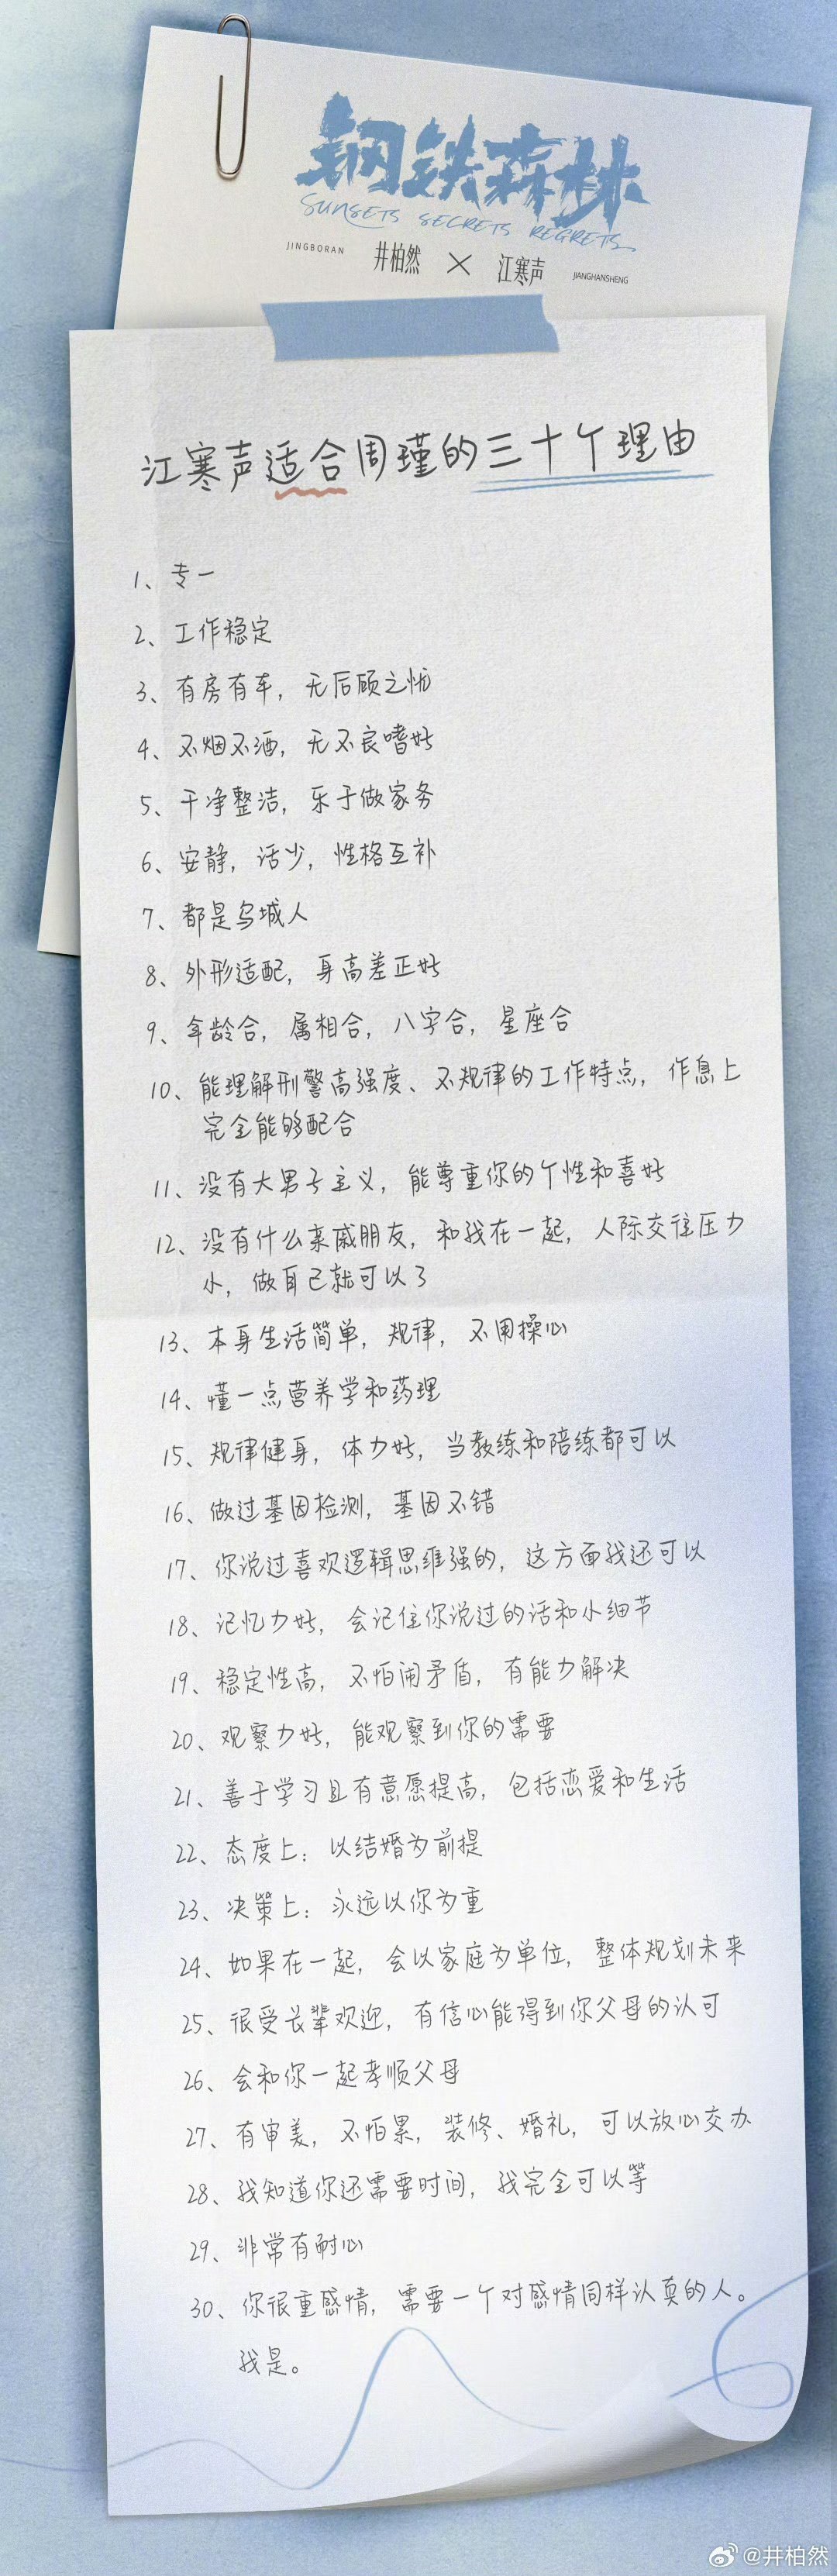 钢铁森林
SUNSETS SECRETS REGRETS
JINGBORAN 井柏然 × 江寒声 JIANGHANSHENG
江寒声适合周瑾的三十个理由
1、专一
2、工作稳定
3、有房有车，无后顾之忧
4、不烟不酒，无不良嗜好
5、干净整洁，乐于做家务
6、安静，话少，性格互补
7、都是乌城人
8、外形适配，身高差正好
9、年龄合，属相合，八字合，星座合
10、能理解刑警高强度、不规律的工作特点，作息上
完全能够配合
11、没有大男子主义，能尊重你的个性和喜好
12、没有什么亲戚朋友，和我在一起，人际交往压力
小，做自己就可以了
13、本身生活简单，规律，不用操心
14、懂一点营养学和药理
15、规律健身，体力好，当教练和陪练都可以
16、做过基因检测，基因不错
17、你说过喜欢逻辑思维强的，这方面我还可以
18、记忆力好，会记住你说过的话和小细节
19、稳定性高，不怕闹矛盾，有能力解决
20、观察力好，能观察到你的需要
21、善于学习且有意愿提高，包括恋爱和生活
22、态度上：以结婚为前提
23、决策上：永远以你为重
24、如果在一起，会以家庭为单位，整体规划未来
25、很受长辈欢迎，有信心能得到你父母的认可
26、会和你一起孝顺父母
27、有审美，不怕累，装修、婚礼，可以放心交办
28、我知道你还需要时间，我完全可以等
29、非常有耐心
30、你很重感情，需要一个对感情同样认真的人。
我是。
@井柏然